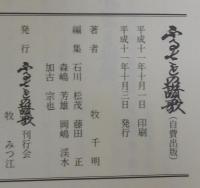 ふるさとの
(自費出版)
平成十一年十月一日 印刷
平成十一年十月三日 発行
著者 牧 千明
編集 石川 松茂 藤田 正
森嶋 芳雄 岡嶋 渓水
加古 宗也
発行 ふるさとの 刊行会
牧 みつ江